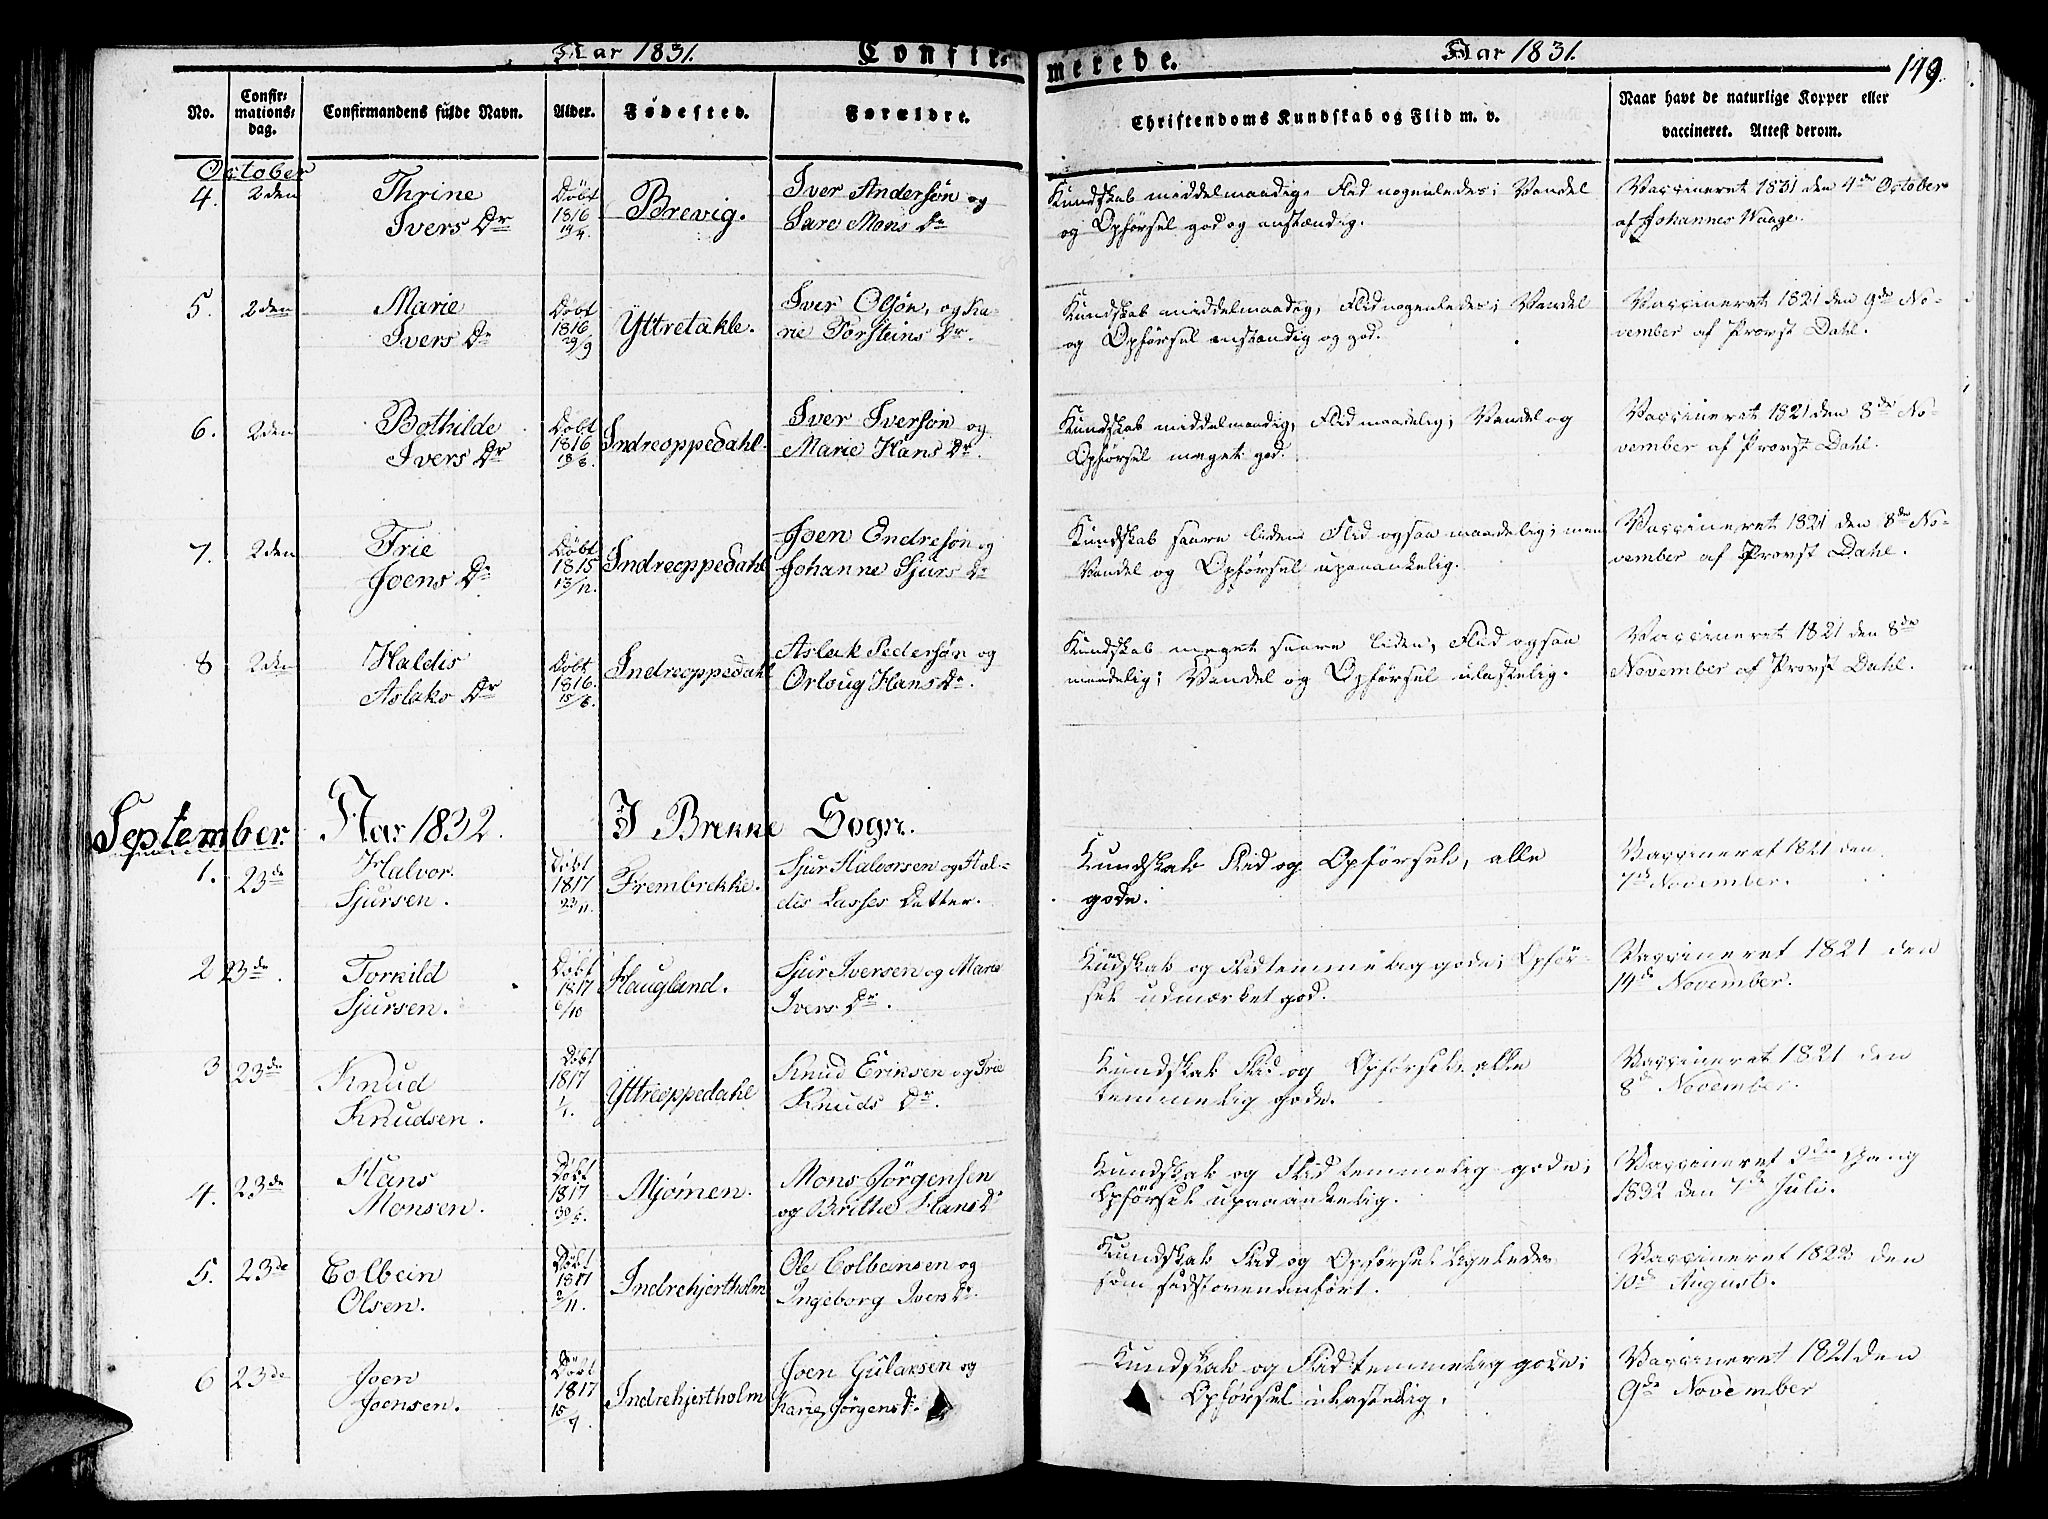 Aar 1831. Confir-
merede. Aar 1831. 149.
No. Confir-
mations-
dag. Confirmandens fulde Navn. Alder. Fødested. Forældre. Christendoms Kundskab og Flid m. v. Naar havt de naturlige Kopper eller
vaccineret. Attest derom.
October
4. 2den Thrine Døbt Brevig. Iver Andersøn og Kundskab middelmaadig, Flid nogenledes; Vandel Vaccineret 1831 den 4de October
Ivers Dr 1816 Mons Dr og Opførsel god og anstændig. af Johannes Waage.
14/4.
5. 2den Marie Døbt Yttretakle. Iver Olsøn, og Ka- Kundskab middelmaadig, Flid nogenledes; Vandel Vaccineret 1821 den 9de No-
Ivers Dr 1816 rie Torsteins Dr. og Opførsel anstændig og god. vember af Provst Dahl.
29/9
6. 2den Bothilde Døbt Indreoppedahl. Iver Iversøn og Kundskab middelmaadig, Flid maadelig; Vandel og Vaccineret 1821 den 8de No-
Ivers Dr 1816 Marie Hans Dr. Opførsel meget god. vember af Provst Dahl.
18/8.
7. 2den Trie Døbt Indreoppedahl Joen Endresøn og Kundskab saare liden, Flid ogsaa maadelig; men Vaccineret 1821 den 8de No-
Joens Dr 1815 Johanne Sjurs Dr Vandel og Opførsel upaaankelig. vember af Provst Dahl.
13/12.
8 2den Haldis Døbt Indreoppedahl Aslak Pedersøn og Kundskab meget saare liden, Flid ogsaa Vaccineret 1821 den 8de
Aslaks Dr 1816. Orloug Hans Dr. maadelig; Vandel og Opførsel ulastelig. November af Provst Dahl.
15/8.
September. Aar 1832. I Brekke Sogn.
1. 23de Halvor Døbt Frembrekke. Sjur Halvorsen og Hal- Kundskab Flid og Opførsel, alle Vaccineret 1821 den
Sjursen. 1817 dis Lasses Datter. gode. 7de November.
23/11.
2 23de. Torkild Døbt Haugland. Sjur Iversen og Marie Kundskab og Flid temmelig gode; Opfør- Vaccineret 1821 den
Sjursen. 1817 Ivers Dr. sel udmærket god. 14de November.
6/10
3 23de Knud Døbt Yttreoppedahl Knud Eriksen og Trie Kundskab Flid og Opførsel, alle Vaccineret 1821 den
Knudsen. 1817 Knuds Dr. temmelig gode. 8de November.
1/1.
4. 23de Hans Døbt Mjømen. Mons Jørgensen Kundskab og Flid temmelig gode; Vaccineret 2den Gang
Monsen. 1817 og Brithe Hans Dr Opførsel upaaankelig. 1832 den 7de Juli.
5. 23de Colbein Døbt Indrehjertholm Ole Colbeinsen og Kundskab Flid og Opførsel ligeledes Vaccineret 1822 den
Olsen. 1817 Ingeborg Ivers Dr. som sidst ovenanført. 10de August.
2/11.
6 23de Joen Døbt Indrehjertholm Joen Gulaksen og Kundskab og Flid temmelig gode; Vaccineret 1821 den
Joensen. 1817 Karie Jørgens Dr. Opførsel ulastelig. 9de November